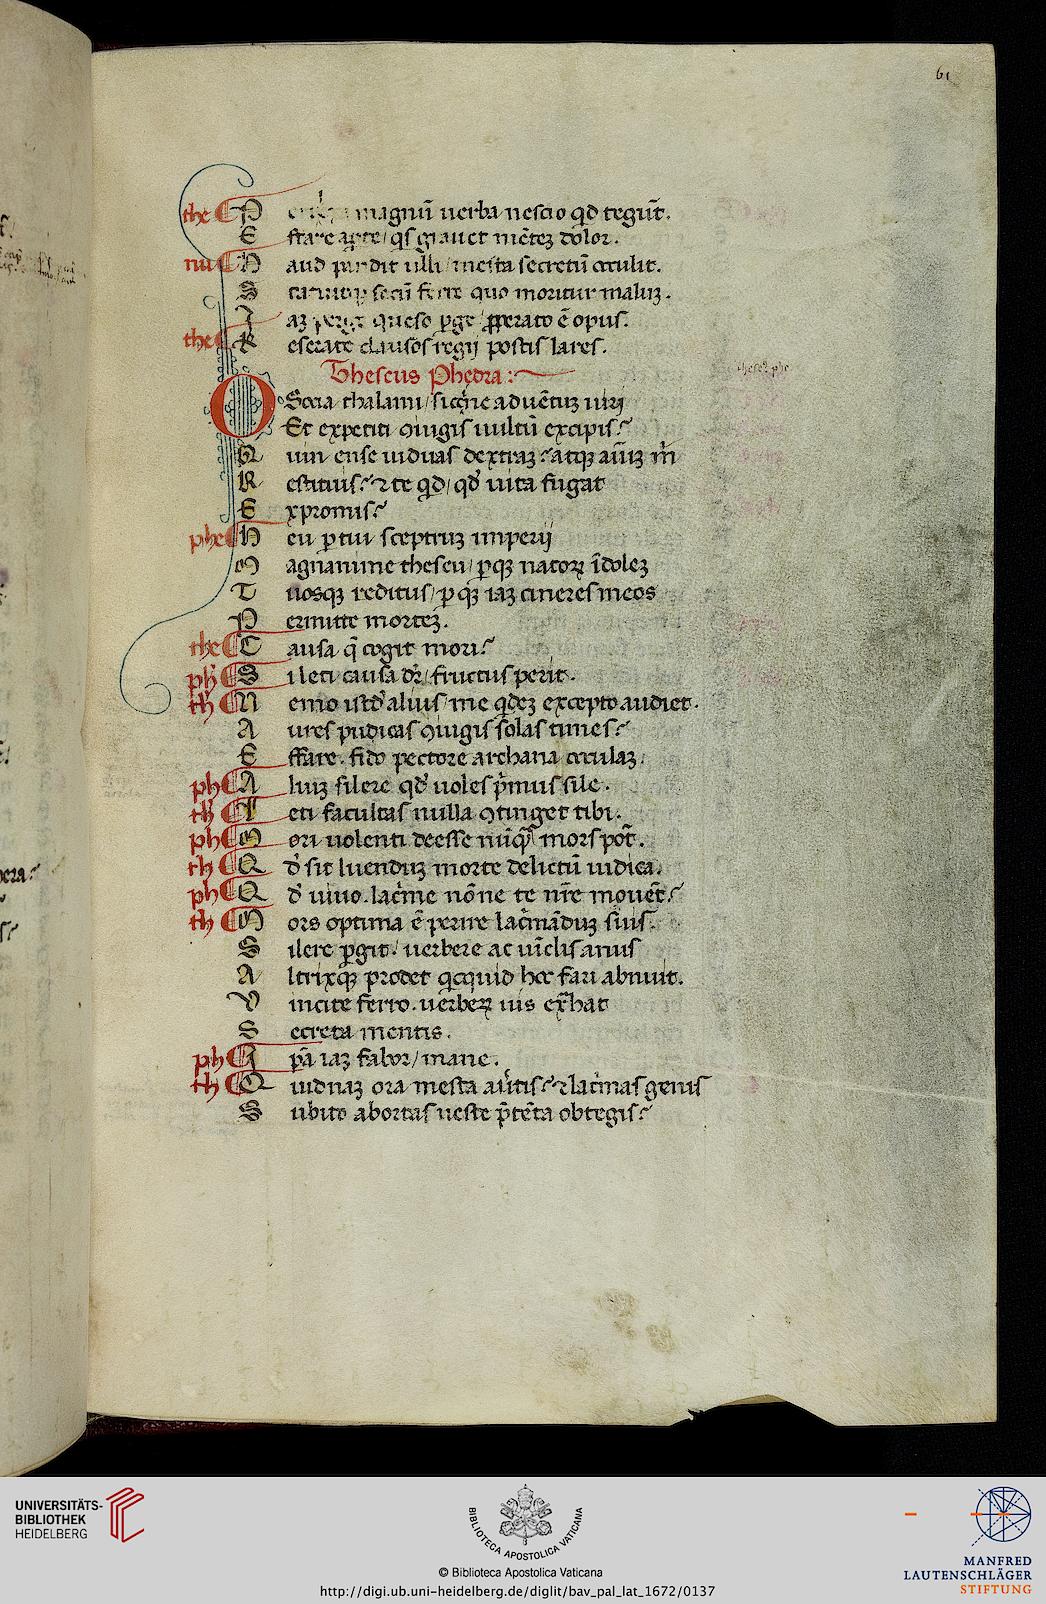 61
the P magnū uerba nescio qd tegūt.
E ffare aperte, q̄s grauet mētez dolor.
nu H aud pandit ulli, mesta secretū occulit.
S tatuitq; secū ferre quo moritur maluz.
I az perge queso ꝑge ꝓperato ē opus.
the R eserate clausos regij postis lares.
Theseus Phedra:
O Socia thalami, siccine aduētuz uiri
Et expetiti ꝯiugis uultū excipis?
Q uin ense uiduas dextraz? atq; aīuz m̄
R estituis? ⁊ te qd, qd' uita fugat
E xpromis?
phe H eu ꝑ tui sceptruz imperij
M agnanime theseu, ꝑq; natoꝝ īdolez
T uosq; reditus, ꝑq; iaz cineres meos
P ermitte mortez.
the C ausa q̄ cogit mori?
ph S i leti causa dr̄, fructus perit.
th N emo istd' alius, me qdez excepto audiet.
A ures pudicas ꝯiugis solas times?
E ffare. fido pectore archana occulaz.
ph A liuz silere qd' uoles p̄mus sile.
th L eti facultas nulla ꝯtinget tibi.
ph M ori uolenti deesse nūq̄ mors pōt.
th Q d' sit luenduz morte delictū indica.
ph Q d' uiuo. lac̄me nōne te nr̄e mouēt?
th M ors optima ē perire lac̄māduz suis.
S ilere ꝑgit. uerbere ac uīclis anus
A ltrixq; prodet qcquid hec fari abnuit.
V incite ferro. uerbeꝝ uis ext̄hat
S ecreta mentis.
ph I pā iaz fabor, mane.
th Q uidnaz ora mesta au̅tis? ⁊ lac̄mas genis
S ubito abortas ueste p̄tēta obtegis?
UNIVERSITÄTS-
BIBLIOTHEK
HEIDELBERG
BIBLIOTECA APOSTOLICA VATICANA
© Biblioteca Apostolica Vaticana
http://digi.ub.uni-heidelberg.de/diglit/bav_pal_lat_1672/0137
MANFRED
LAUTENSCHLÄGER
STIFTUNG